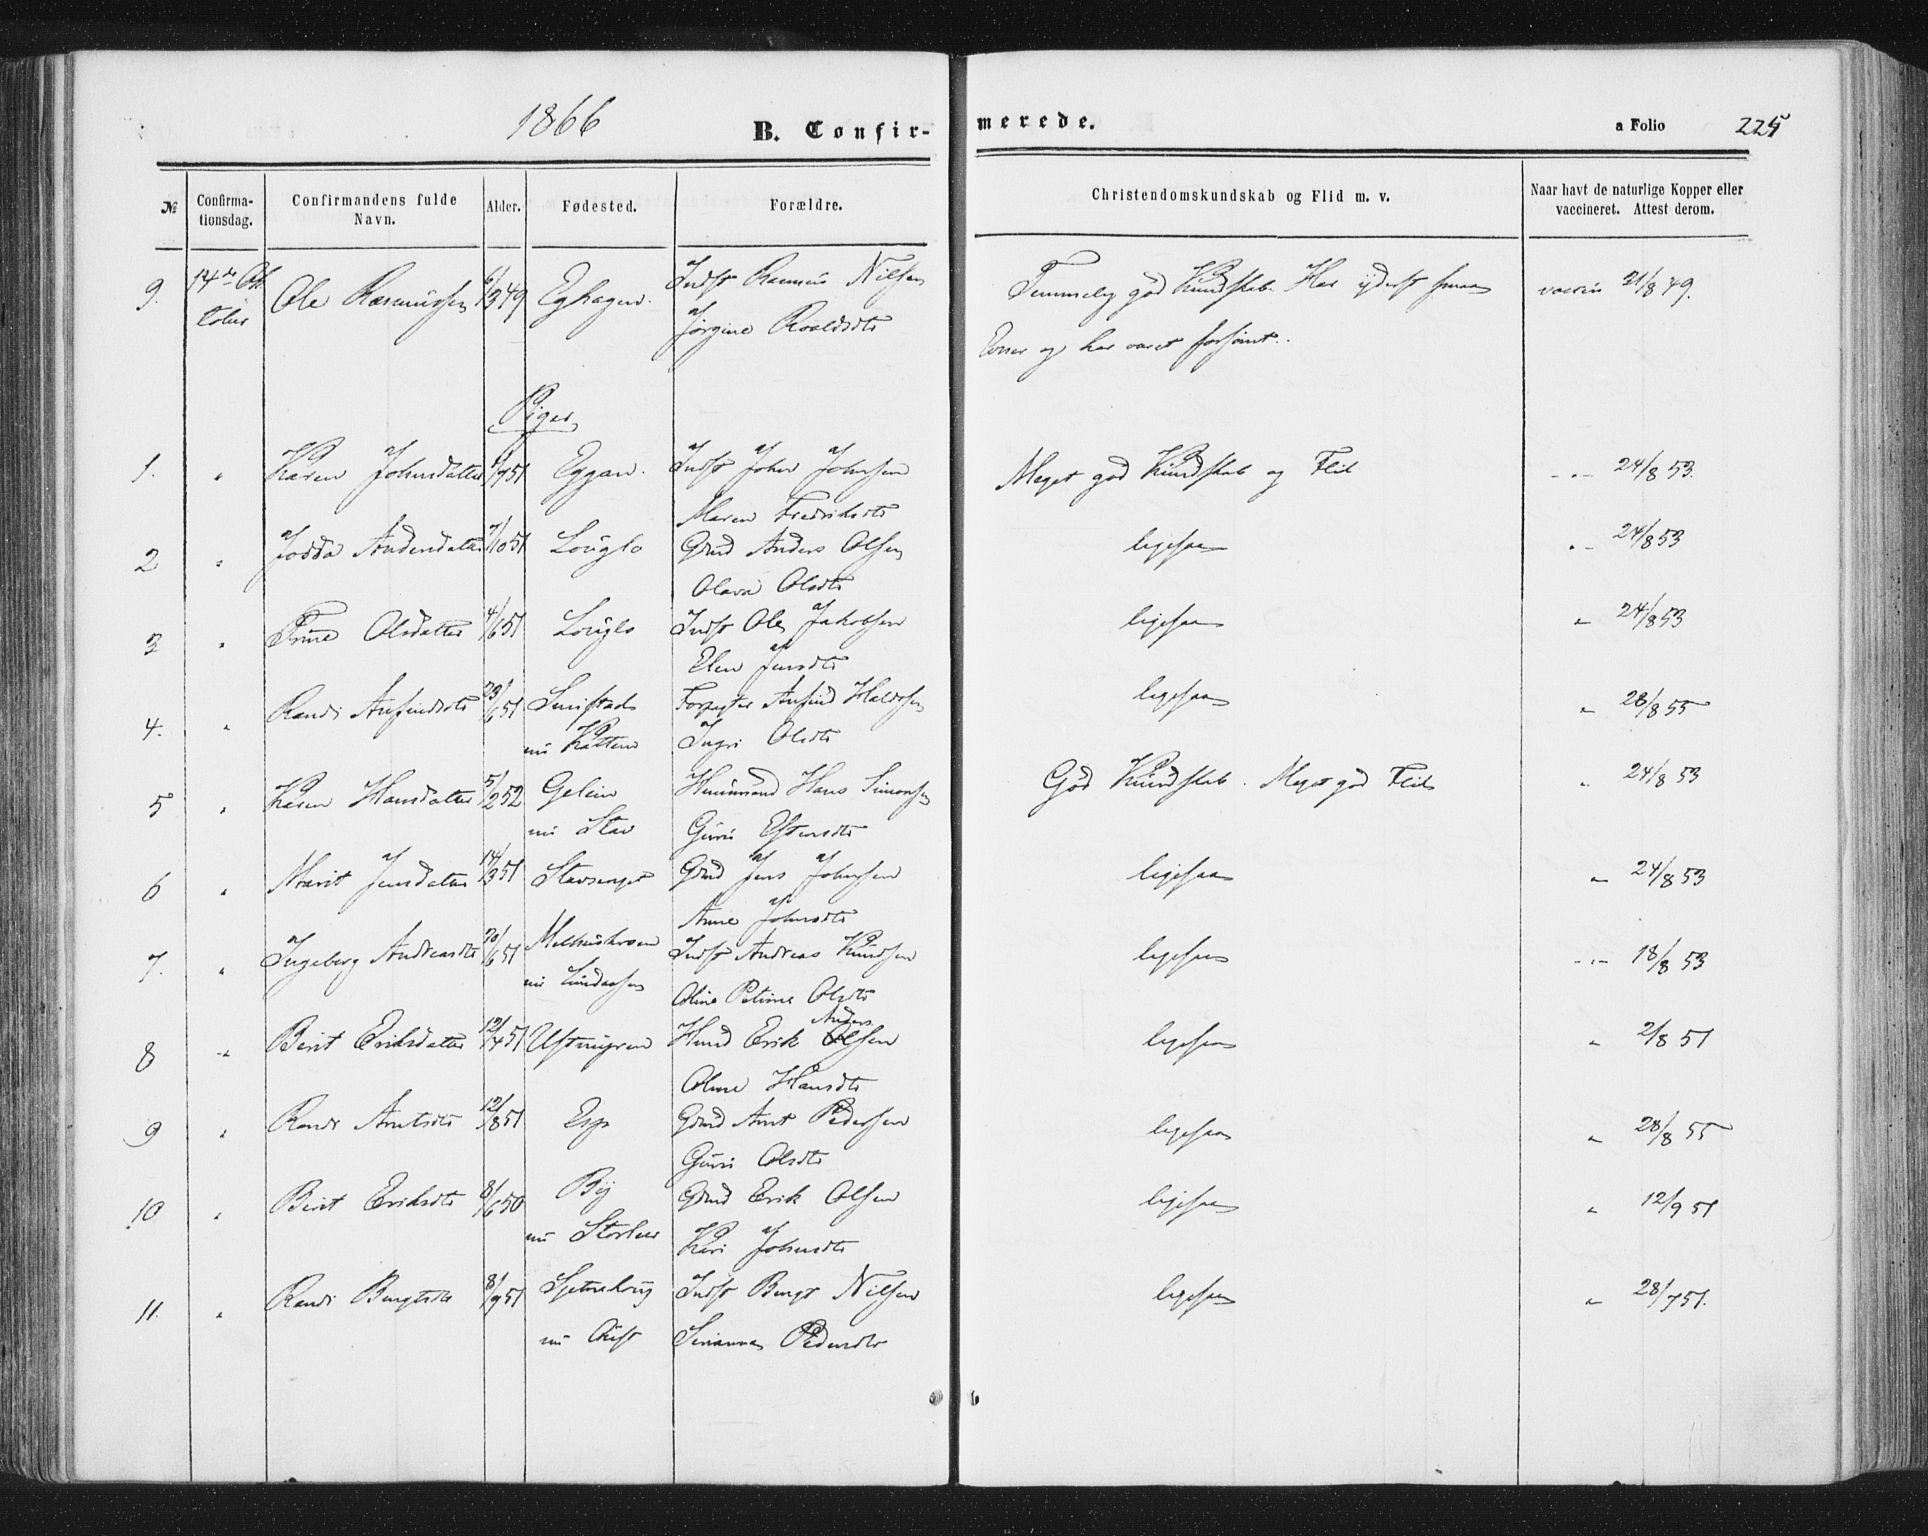 1866
B. Confir-
merede.
a Folio 225
№
Confirma-
tionsdag.
Confirmandens fulde
Navn.
Alder.
Fødested.
Forældre.
Christendomskundskab og Flid m. v.
Naar havt de naturlige Kopper eller
vaccineret. Attest derom.
9. 14de Ok Ole Rasmussen 6/3 49 Eghagen. Indst Rasmus Nilsen Temmelig god Kundskab. Har yderst smaa vaccin 21/8 49.
tober Jørgine Roaldsdtr Evner og har været forsømt.
Piger
1. " Karen Johnsdatter 1/9 51 Eggan. Indst John Johnsen Meget god Kundskab og Flid -"- 24/8 53.
Maren Fredriksdtr
2 " Andersdatter 7/10 51 Løuglo Grd Anders Olsen ligesaa "- 24/8 53
Olava Olsdtr
3 " Trine Olsdatter 4/6 51 Løuglo Indst Ole Jakobsen ligesaa " 24/8 53
Elen Jensdtr
4. " Randi Anfindsdtr 23/6 51 Forpagter Anfind Haldosen ligesaa " 28/8 55
nu Kattem Ingri Olsdtr
5 " Karen Hansdatter 5/2 52 Gelein Huusmand Hans Simonsen God Kundskab. Meget god Flid " 24/8 53
nu Stav Guri Estensdtr
6 " Marit Jensdatter 14/3 51 Stavsenget Grd Jens Johnsen ligesaa " 24/8 53
Anne Johnsdtr
7. " Ingeborg Andreasdtr 20/6 51 Melhuskroen Indst Andreas Knudsen ligesaa -"- 18/8 53
nu Oline Petrine Olsdtr
Anders
8 " Berit Eriksdatter 12/4 51 Ustmyren Husmd Erik Olsen ligesaa " 2/8 51
Oline Hansdtr
9 " Randi Arntsdtr 12/8 51 Esp Grd Arnt Pedersen ligesaa " 28/8 55
Guri Olsdtr
10 " Berit Eriksdtr 8/6 50 By Grd Erik Olsen ligesaa " 12/9 51
nu Storler Kari Johnsdtr
11. " Randi Bengtsdtr 8/9 51 Indst Bengt Nilsen ligesaa " 28/7 51.
nu Øust Sirianna Pedersdtr